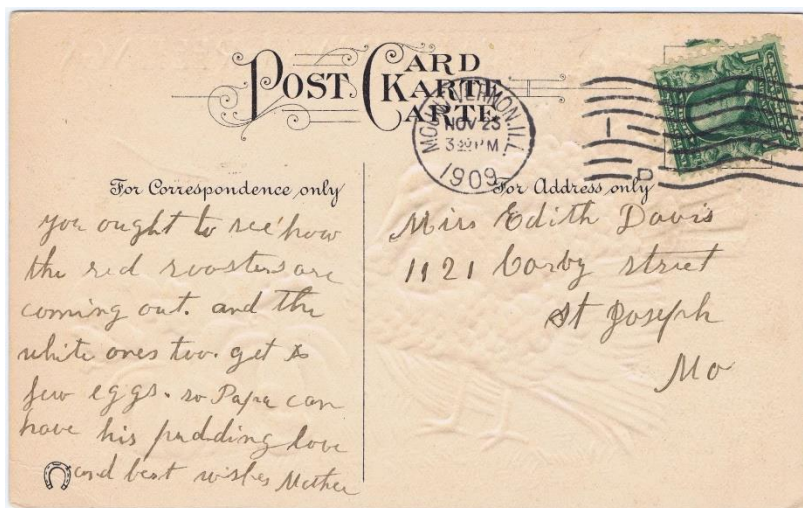 POST CARD
KARTE
CARTE
MOUNT VERNON, ILL.
NOV 23
3 30 P.M.
1909
For Correspondence only
you ought to see how
the red roosters are
coming out. and the
white ones too. get a
few eggs. so Papa can
have his pudding love
and best wishes Mother
For Address only
Miss Edith Davis
1121 Corby street
St Joseph
Mo